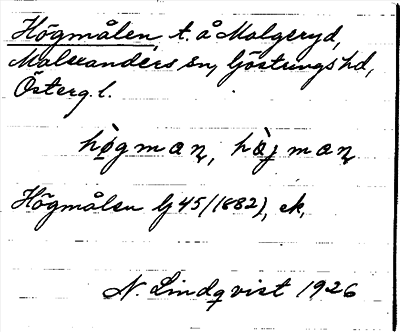 Högmålen, t. å Malgeryd,
Malexanders sn, Göstrings hd,
Österg. l.
Högmålen lj 45/1882), ek,
N. Lindqvist 1926